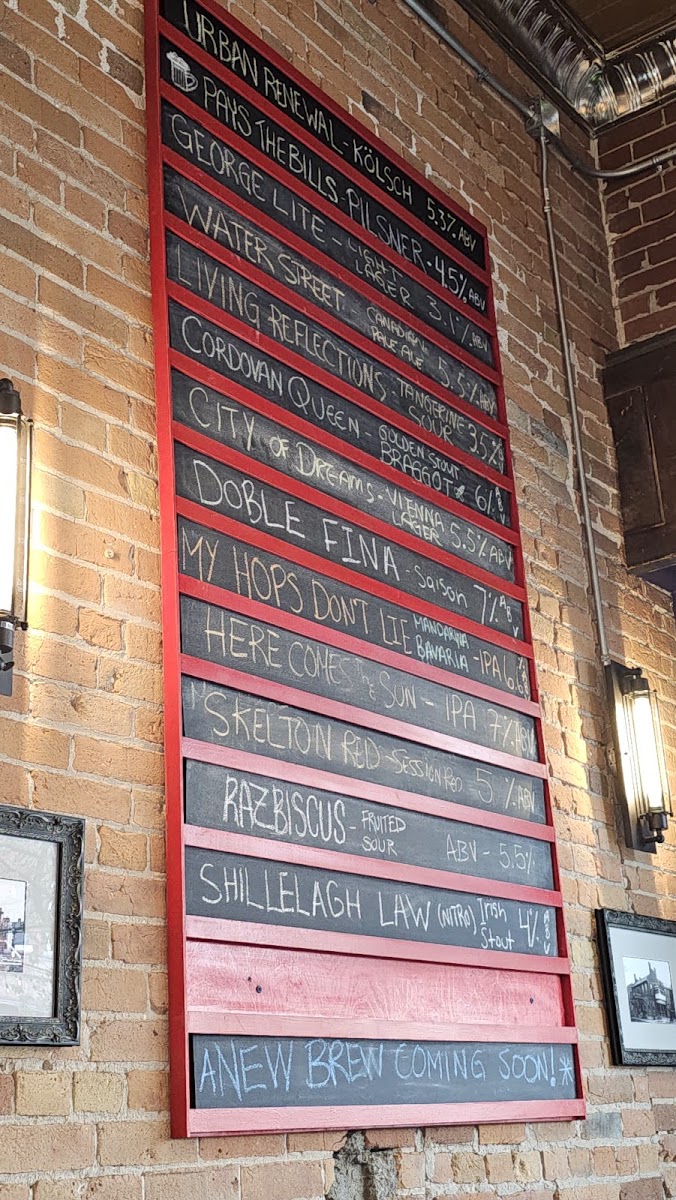 URBAN RENEWAL - KÖLSCH 5.3% ABV
PAYS THE BILLS - PILSNER - 4.5% ABV
GEORGE LITE - LIGHT LAGER 3.1% ABV
WATER STREET - CANADIAN PALE ALE 5.5% ABV
LIVING REFLECTIONS - TANGERINE SOUR 3.5%
CORDOVAN QUEEN - GOLDEN STOUT BRAGGOT 6% ABV
CITY OF DREAMS - VIENNA LAGER 5.5% ABV
DOBLE FINA - Saison 7% ABV
MY HOPS DON'T LIE MANDARINA BAVARIA - IPA
HERE COMES THE SUN - IPA 7% ABV
SKELTON RED - SESSION RED 5% ABV
RAZBISCUS - FRUITED SOUR ABV - 5.5%
SHILLELAGH LAW (NITRO) Irish Stout 4%
A NEW BREW COMING SOON! *